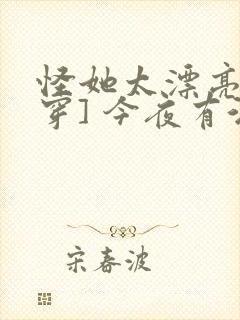 怪她太漂亮
穿] 今夜有
宋春波